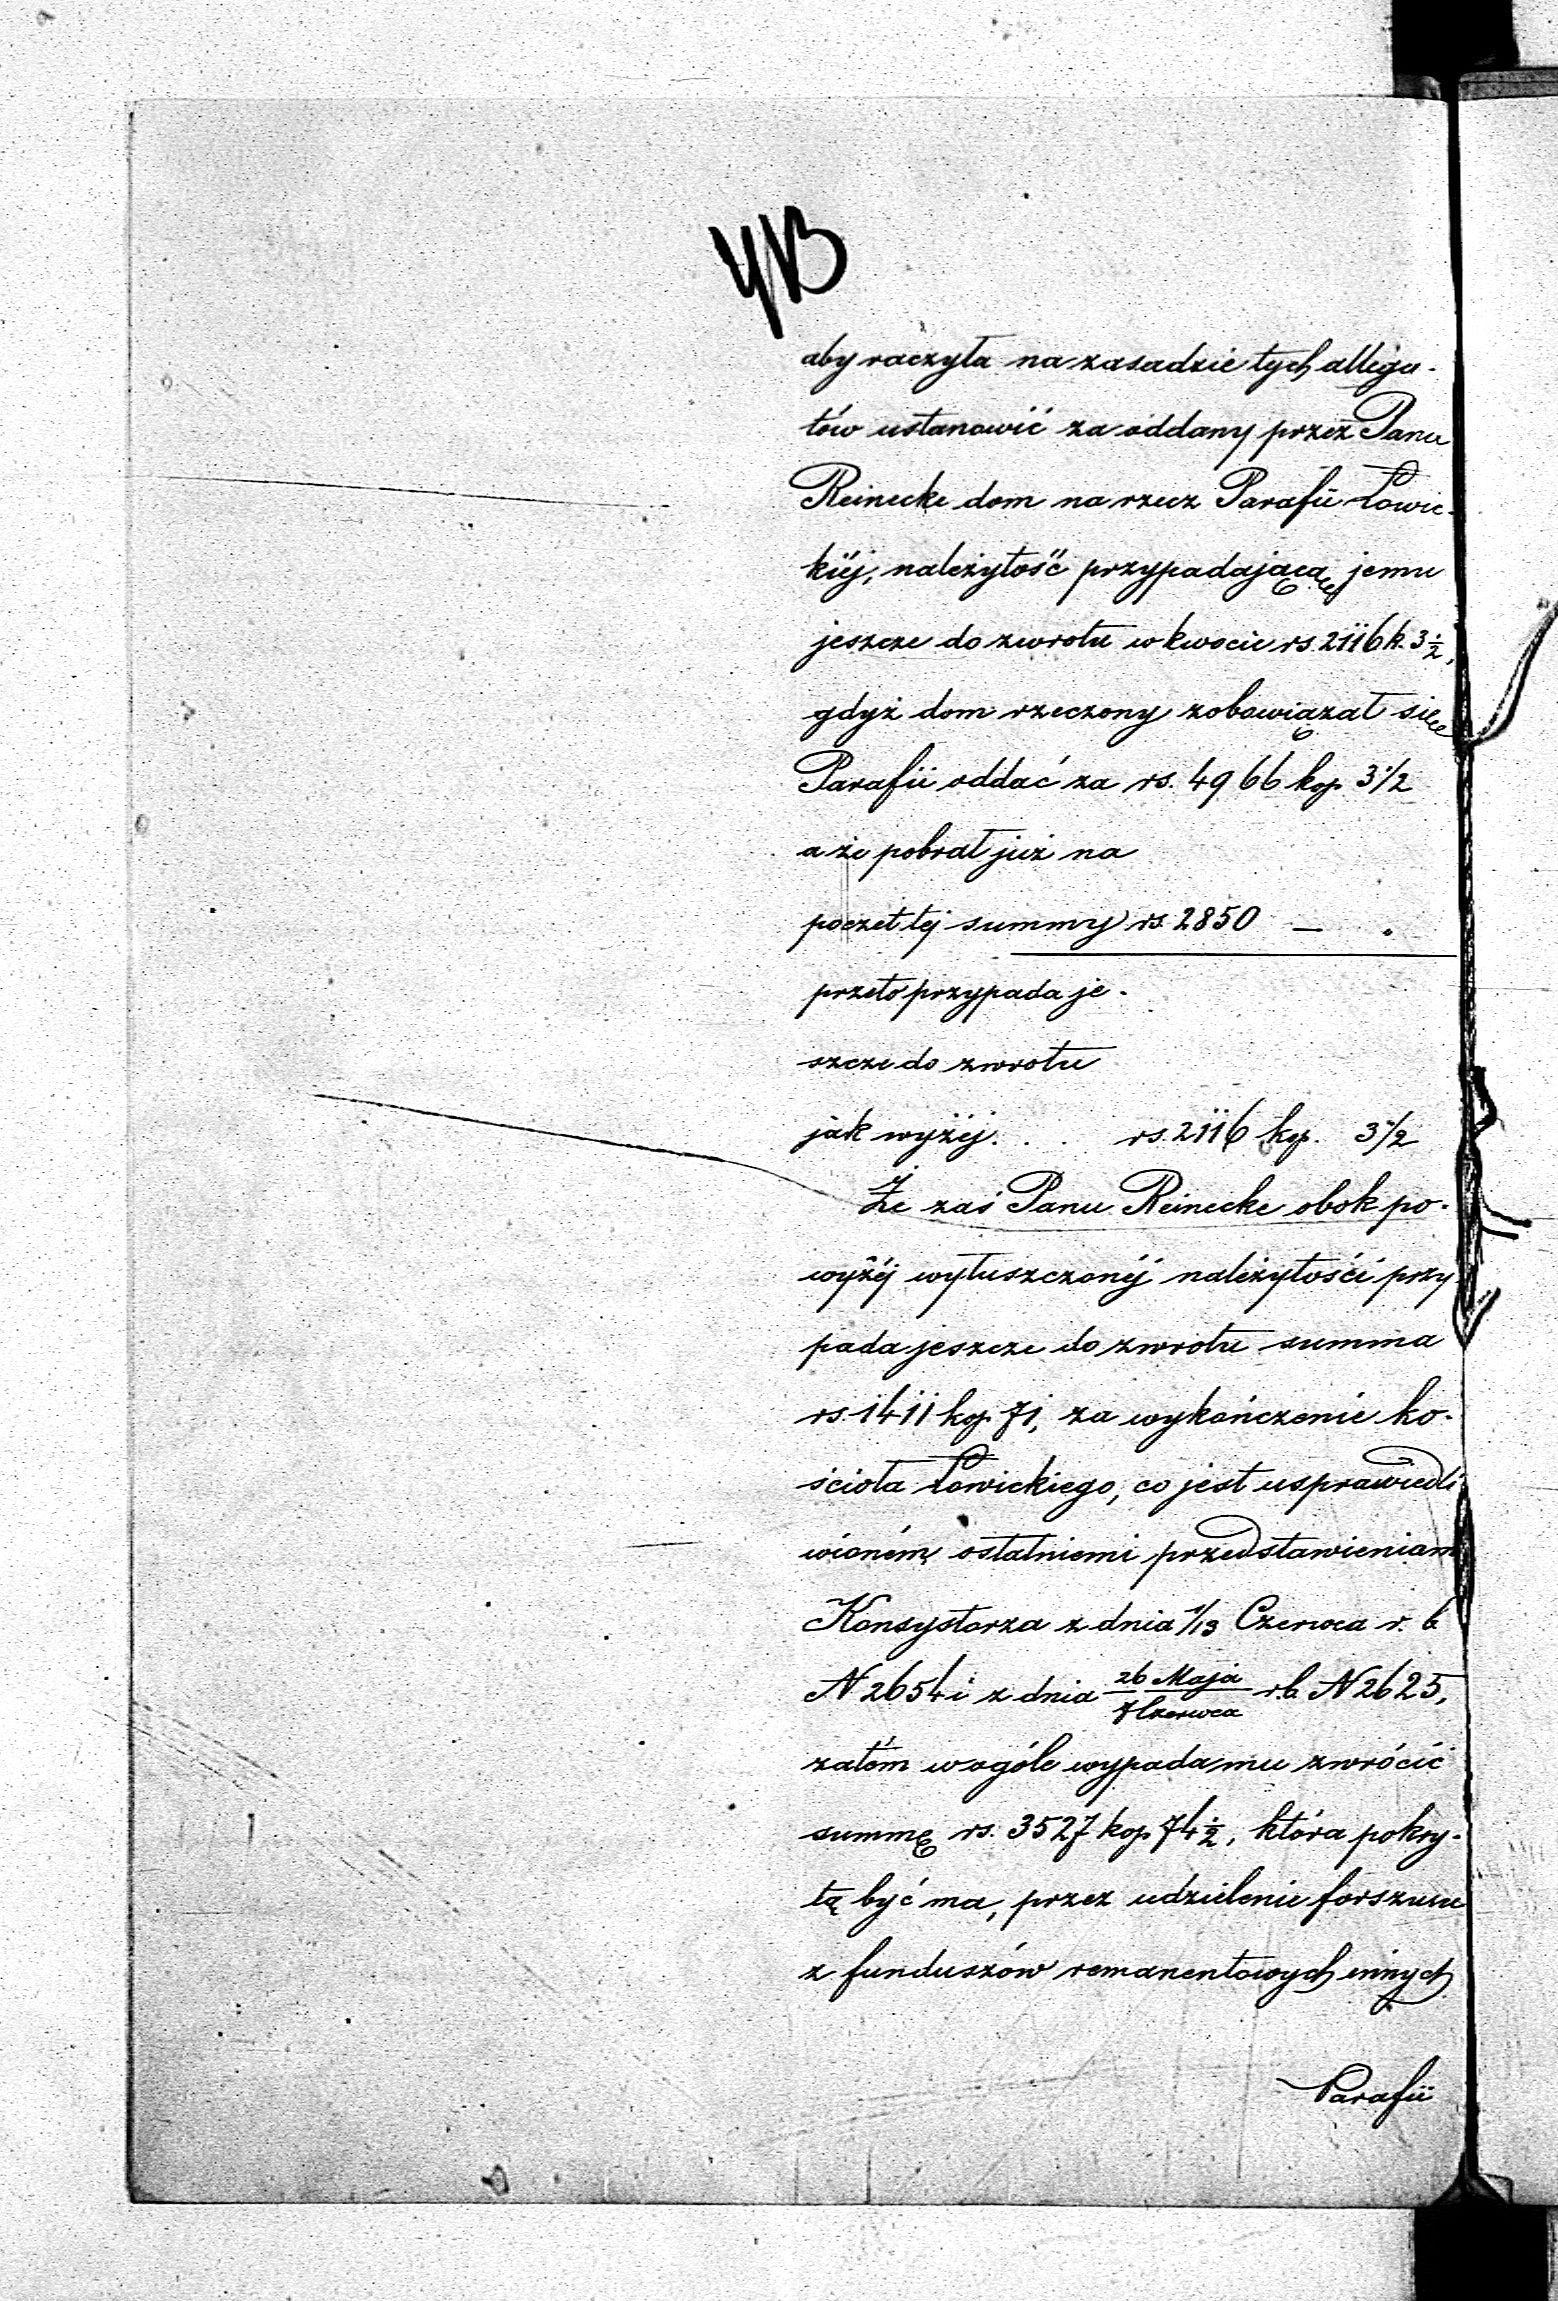 413
aby raczyła na zasadzie tych allega-
tów ustanowić za oddany przez Pana
Reinecke dom na rzecz Parafii Łowic-
kiéj, należytość przypadającą jemu
jeszcze do zwrotu w kwocie rs. 2116 k. 3 1/2,
gdyż dom rzeczony zobowiązał się
Parafii oddać za rs. 4966 kop. 3 1/2
a że pobrał już na
poczet téj summy rs. 2850 — "
przeto przypada je-
szcze do zwrotu
jak wyżéj . . . rs. 2116 kop. 3 1/2
Że zaś Panu Reinecke obok po-
wyżéj wyłuszczonéj należytości przy
pada jeszcze do zwrotu summa
rs. 1411 kop. 71, za wykończenie ko-
ścioła Łowickiego, co jest usprawiedli
wioném ostatniemi przedstawieniam
Konsystorza z dnia 1/13 Czerwca r. b
N 2654 i z dnia 26 Maja / 7 Czerwca r. b. N 2625,
zatém w ogóle wypada mu zwrócić
summę rs. 3527 kop 74 1/2, która pokry-
tą być ma, przez udzielenie forszusu
z funduszów remanentowych innych
Parafii